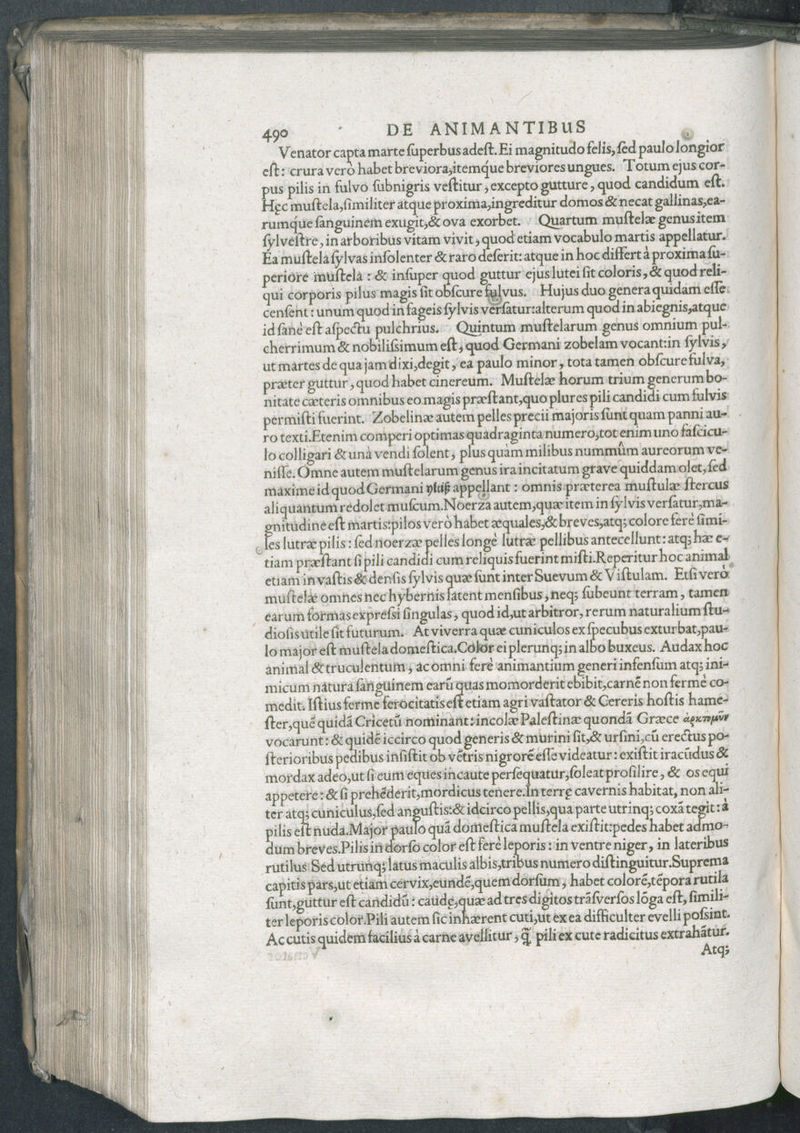 490 DE ANIMANTIBUS
Venator capta marte ſuperbus adeſt. Ei magnitudo felis, ſed paulo longior
eſt: crura verò habet breviora, itemq́ue breviores ungues. Totum ejus cor-
pus pilis in fulvo ſubnigris veſtitur, excepto gutture, quod candidum eſt.
Hęc muſtela, ſimiliter atque proxima, ingreditur domos & necat gallinas, ea-
rumq́ue ſanguinem exugit, & ova exorbet. Quartum muſtelæ genus item
ſylveſtre, in arboribus vitam vivit, quod etiam vocabulo martis appellatur.
Ea muſtela ſylvas inſolenter & raro deſerit: atque in hoc differt à proxima ſu-
periore muſtela: & inſuper quod guttur ejus lutei ſit coloris, & quod reli-
qui corporis pilus magis ſit obſcure fulvus. Hujus duo genera quidam eſſe
cenſent: unum quod in fageis ſylvis verſatur: alterum quod in abiegnis, atque
id ſanè eſt aſpectu pulchrius. Quintum muſtelarum genus omnium pul-
cherrimum & nobiliſsimum eſt, quod Germani zobelam vocant: in ſylvis,
ut martes de qua jam dixi, degit, ea paulo minor, tota tamen obſcure fulva,
præter guttur, quod habet cinereum. Muſtelæ horum trium generum bo-
nitate cæteris omnibus eo magis præſtant, quo plures pili candidi cum fulvis
permiſti fuerint. Zobelinæ autem pelles precii majoris ſunt quam panni au-
ro texti. Etenim comperi optimas quadraginta numero, tot enim uno faſcicu-
lo colligari & unà vendi ſolent, plus quàm milibus nummûm aureorum ve-
niſſe. Omne autem muſtelarum genus ira incitatum grave quiddam olet, ſed
maxime id quod Germani appellant: omnis præterea muſtulæ ſtercus
aliquantum redolet muſcum. Noerza autem, quæ item in ſylvis verſatur, ma-
gnitudine eſt martis: pilos verò habet æquales, & breves, atq; colore ferè ſimi-
les lutræ pilis: ſed noerzæ pelles longè lutræ pellibus antecellunt: atq; hæ e-
tiam præſtant ſi pili candidi cum reliquis fuerint miſti. Reperitur hoc animal
etiam in vaſtis & denſis ſylvis quæ ſunt inter Suevum & Viſtulam. Etſi verò
muſtelæ omnes nec hybernis latent menſibus, neq; ſubeunt terram, tamen
earum formas expreſsi ſingulas, quod id, ut arbitror, rerum naturalium ſtu-
dioſis utile ſit futurum. At viverra quæ cuniculos ex ſpecubus exturbat, pau-
lo major eſt muſtela domeſtica. Color ei plerunq; in albo buxeus. Audax hoc
animal & truculentum, ac omni ferè animantium generi infenſum atq; ini-
micum natura ſanguinem earũ quas momorderit ebibit, carnẽ non fermè co-
medit. Iſtius ferme ferocitatis eſt etiam agri vaſtator & Cereris hoſtis hame-
ſter, quẽ quidã Cricetũ nominant: incolæ Paleſtinæ quondã Græce
vocarunt: & quidẽ iccirco quod generis & murini ſit, & urſini, cũ erectus po-
ſterioribus pedibus inſiſtit ob vẽtris nigrorẽ eſſe videatur: exiſtit iracũdus &
mordax adeo, ut ſi eum eques incaute perſequatur, ſoleat proſilire, & os equi
appetere: & ſi prehẽderit, mordicus tenere. In terrę cavernis habitat, non ali-
ter atq; cuniculus, ſed anguſtis: & idcirco pellis, qua parte utrinq; coxã tegit: à
pilis eſt nuda. Major paulo quã domeſtica muſtela exiſtit: pedes habet admo-
dum breves. Pilis in dorſo color eſt ferè leporis: in ventre niger, in lateribus
rutilus. Sed utrunq; latus maculis albis, tribus numero diſtinguitur. Suprema
capitis pars, ut etiam cervix, eundẽ, quem dorſum, habet colorẽ, tẽpora rutila
ſunt, guttur eſt candidũ: caudę, quæ ad tres digitos trãſverſos lõga eſt, ſimili-
ter leporis color. Pili autem ſic inhærent cuti, ut ex ea difficulter evelli poſsint.
Ac cutis quidem facilius à carne avellitur, q̃ pili ex cute radicitus extrahãtur.
Atq;